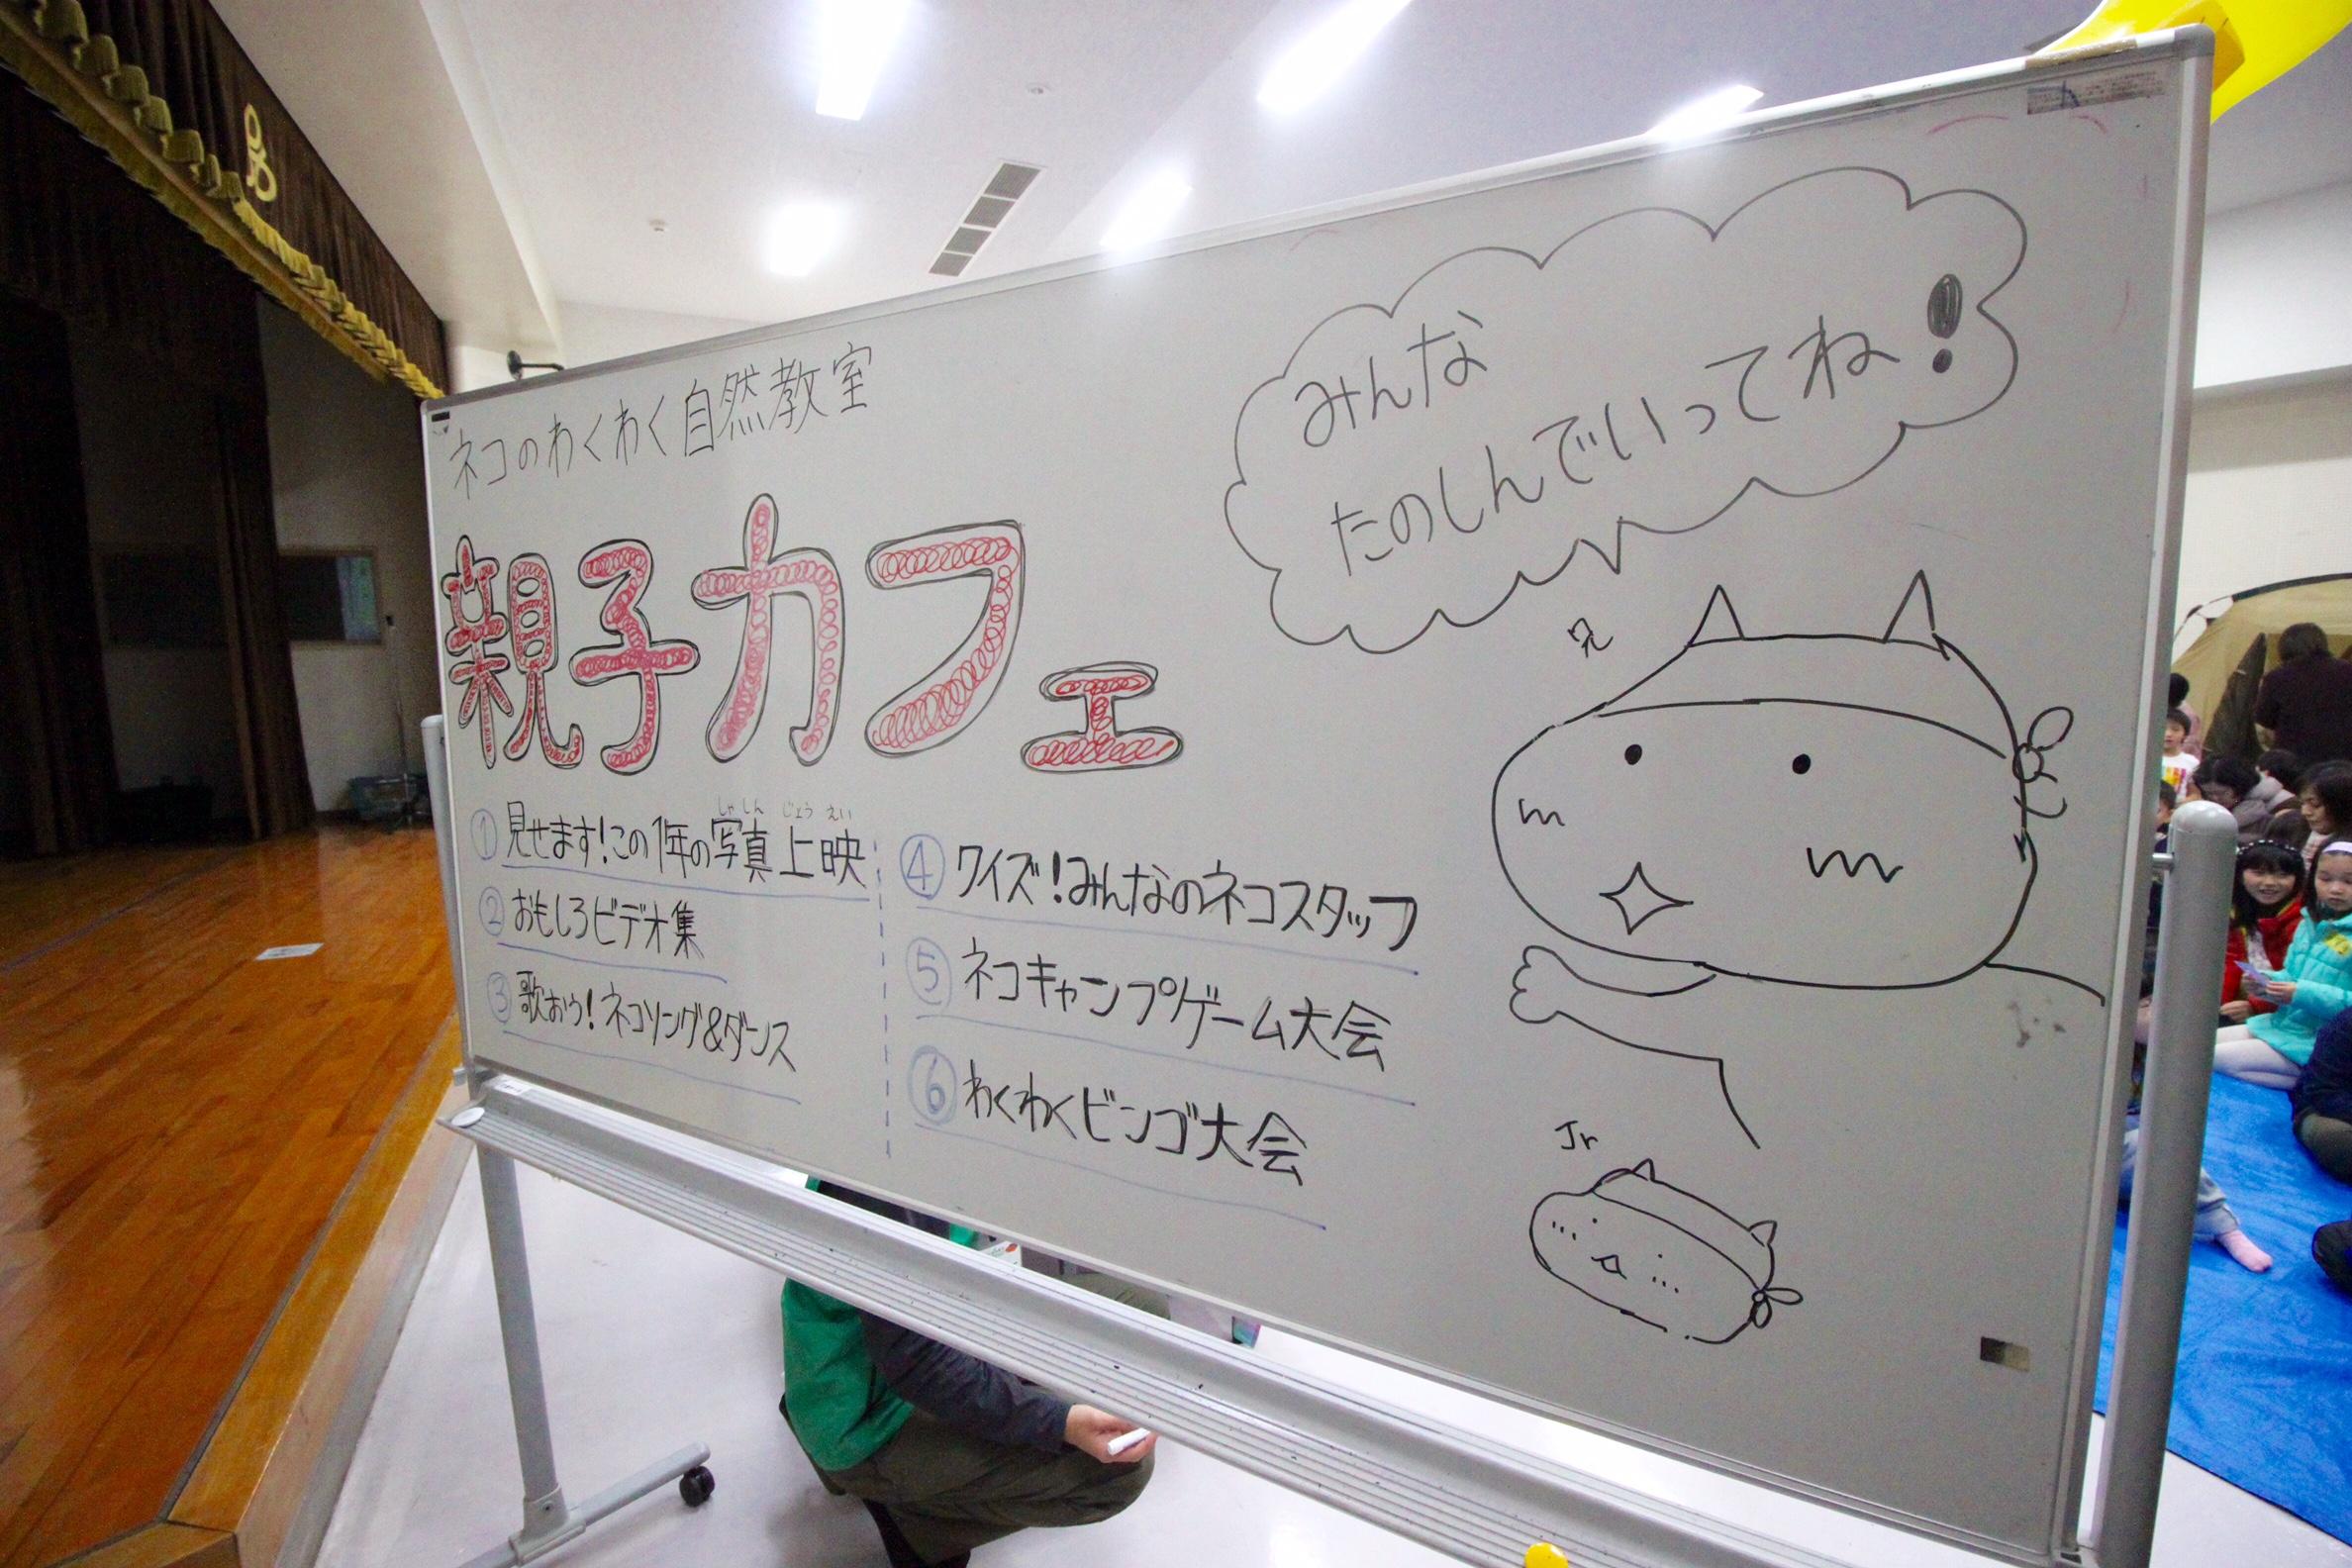 ネコのわくわく自然教室
親子カフェ
しゃしん じょうえい
①見せます!この1年の写真上映
②おもしろビデオ集
③歌おう!ネコソング&ダンス
④クイズ!みんなのネコスタッフ
⑤ネコキャンプゲーム大会
⑥わくわくビンゴ大会
みんな
たのしんでいってね!
兄
Jr